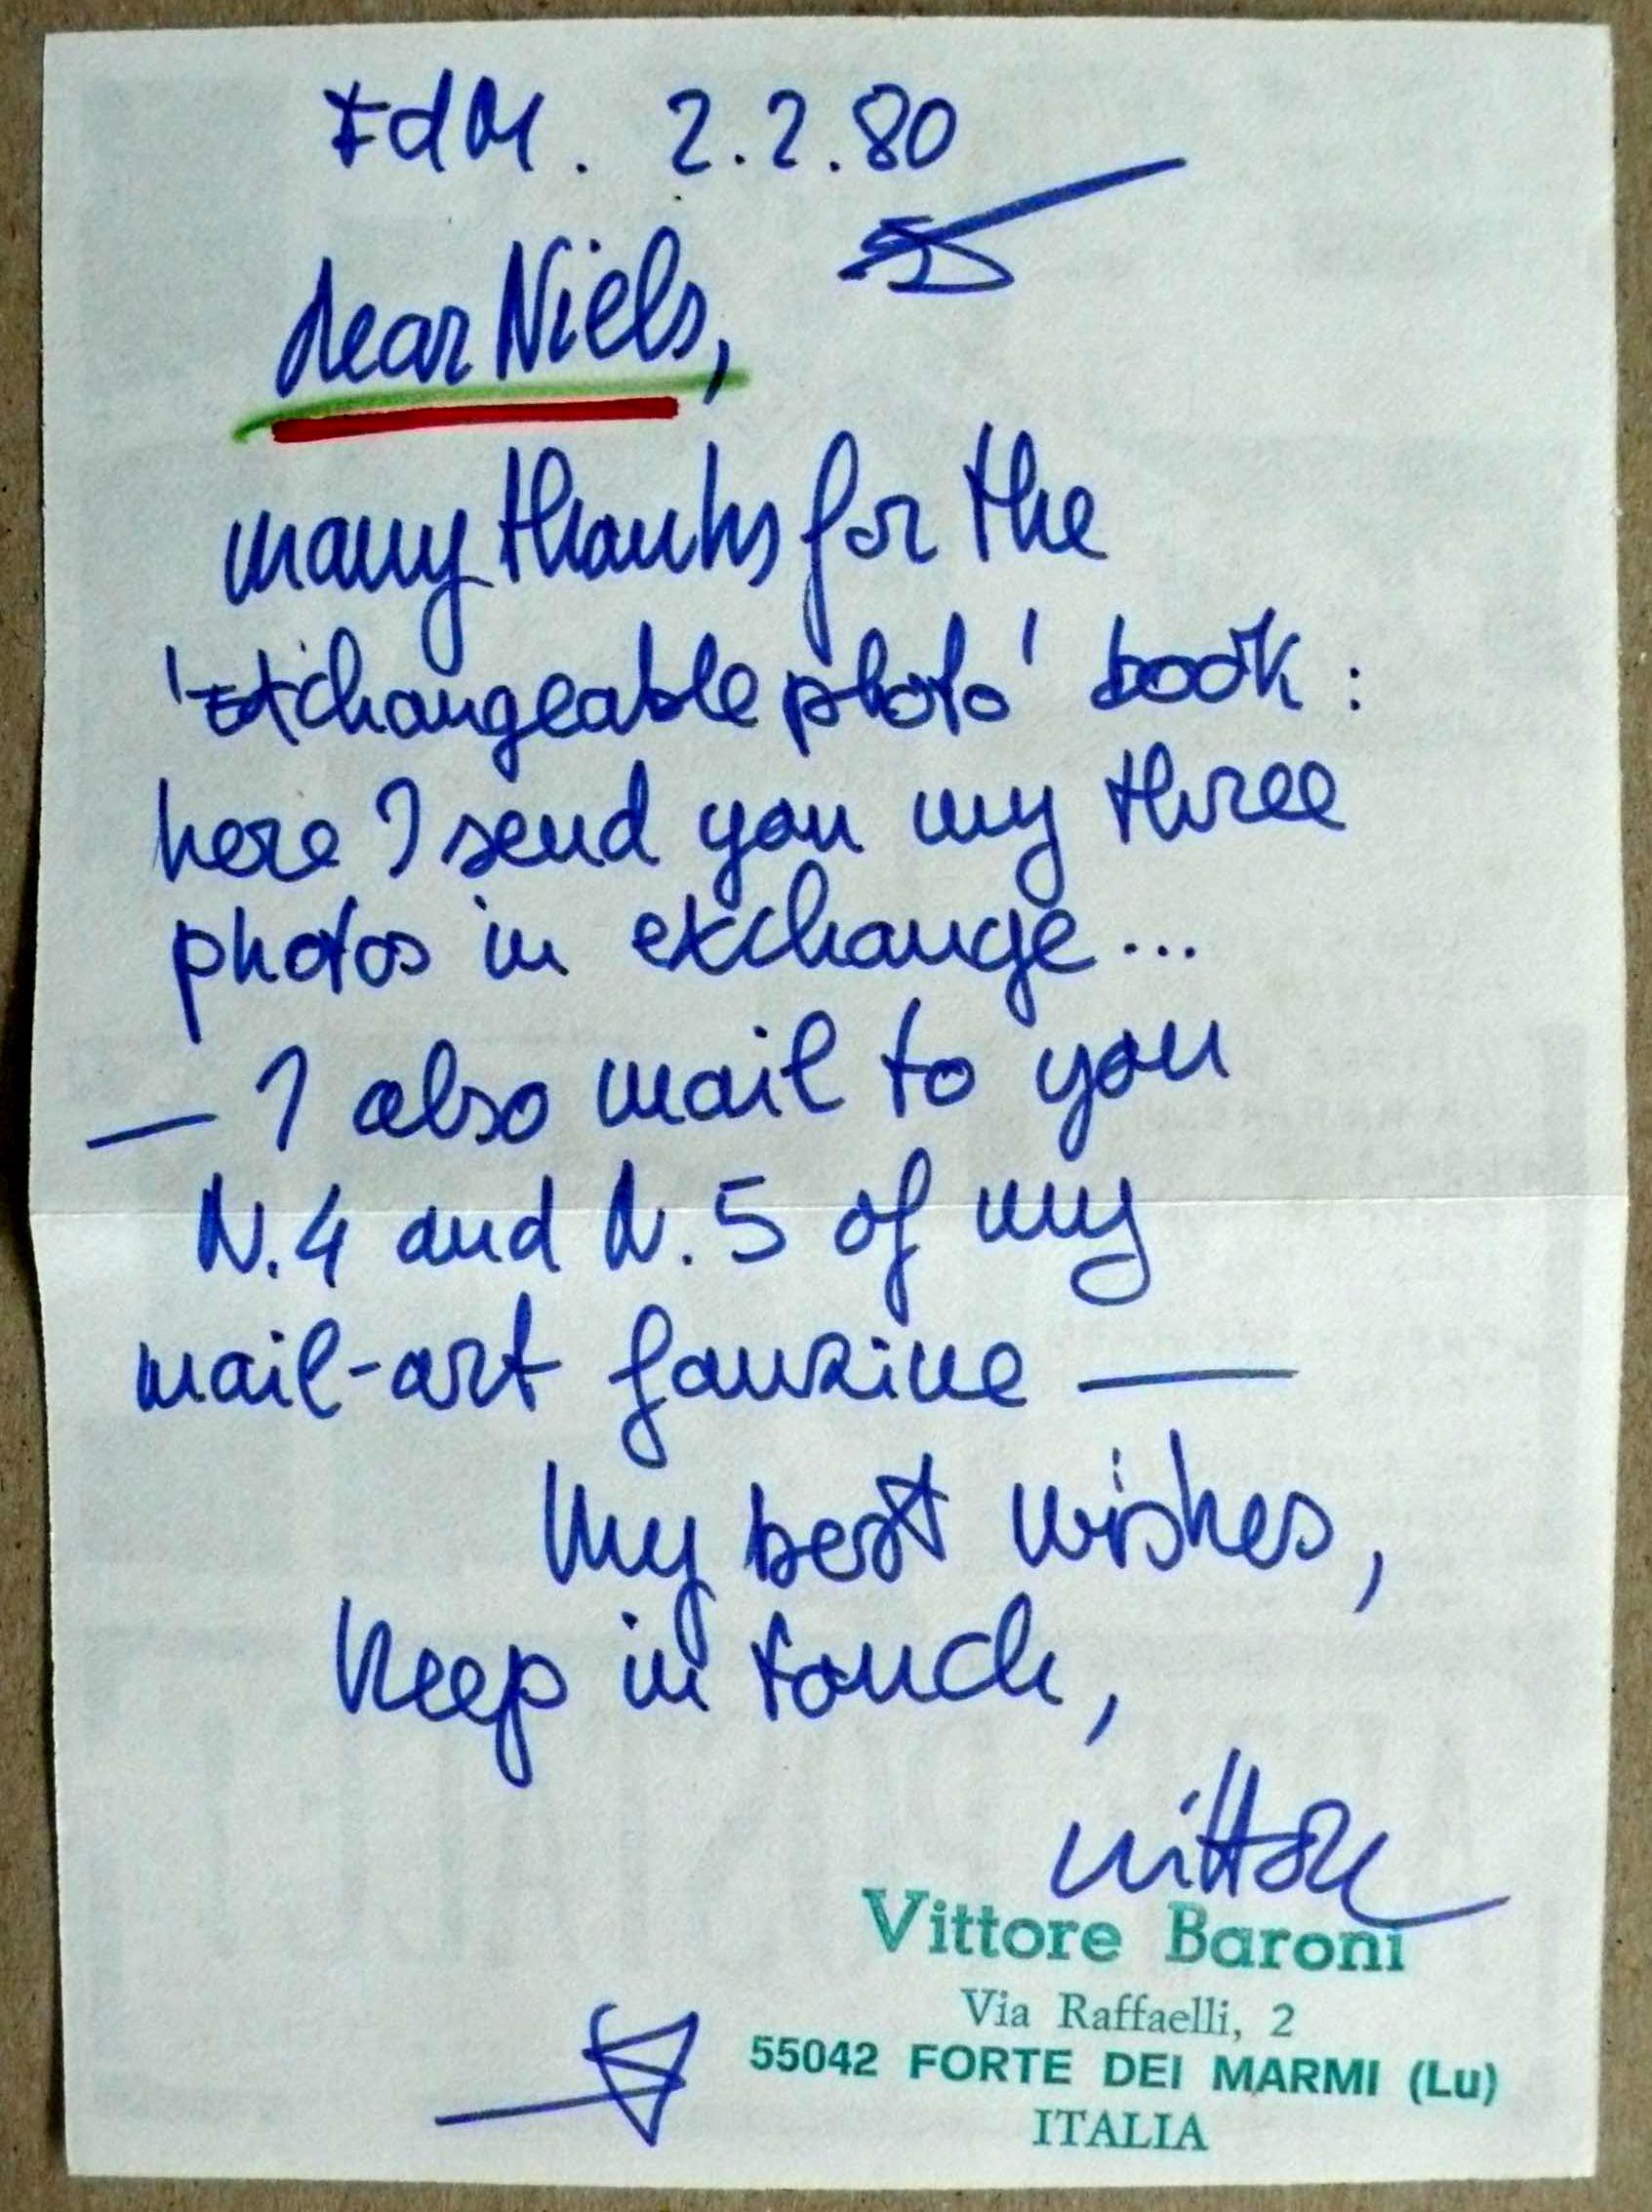 FdM. 2.2.80
dear Niels,
many thanks for the
'Exchangeable photo' book :
here I send you my three
photos in exchange...
— I also mail to you
N.4 and N.5 of my
mail-art fanzine —
My best wishes,
Keep in touch,
Vittore
Vittore Baroni
Via Raffaelli, 2
55042 FORTE DEI MARMI (Lu)
ITALIA